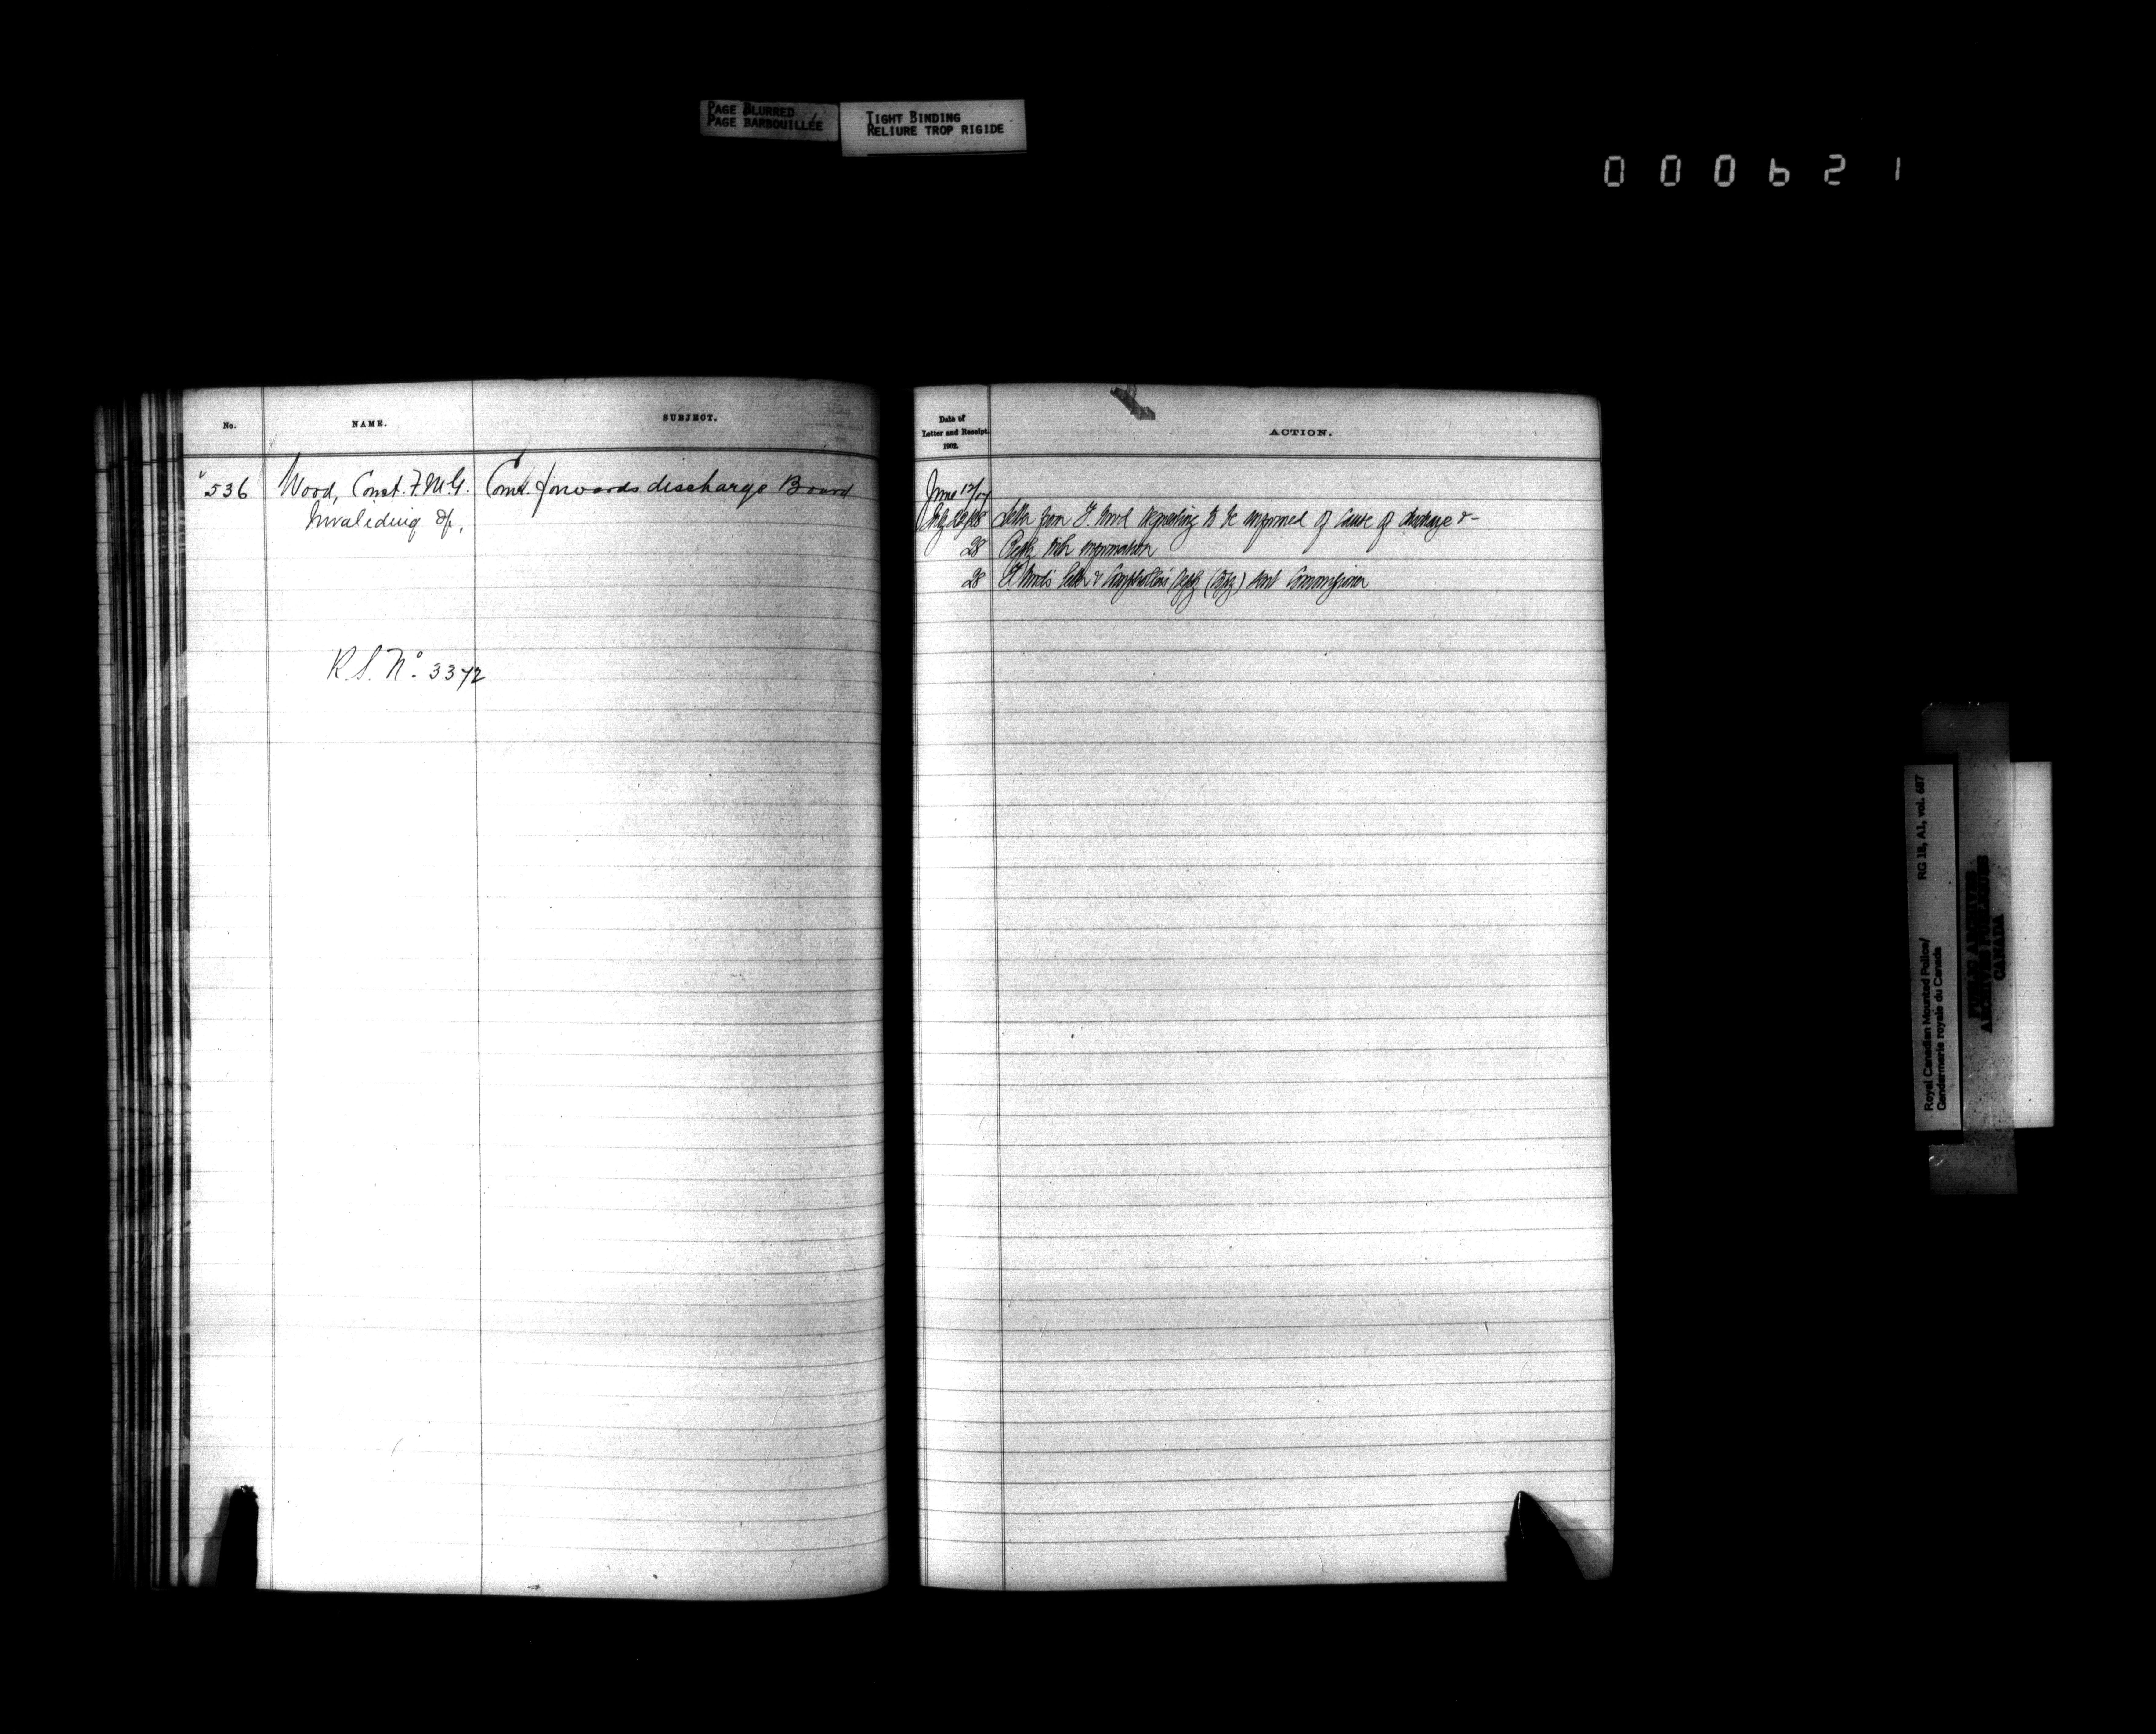 PAGE BLURRED
PAGE BARBOUILLÉE
TIGHT BINDING
RELIURE TROP RIGIDE
000621
No.
NAME.
SUBJECT.
536 Wood, Const. F.M.G. Comr. forwards discharge Board
Invaliding of,
R.S. No. 3372
Date of
Letter and Receipt.
1902.
ACTION.
June 12/17
July 26/28 Letter from F. Wood requesting to be informed of cause of discharge &-
28 Reply with information
28 F. Wood's letter & Comptroller's reply (copy) sent Commissioner
Royal Canadian Mounted Police/ RG 18, A1, vol. 687
Gendarmerie royale du Canada
PUBLIC ARCHIVES
ARCHIVES PUBLIQUES
CANADA